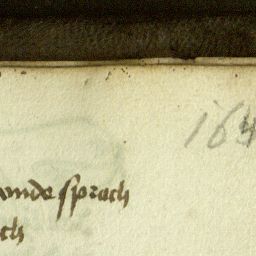 164
vnde sprach
ch